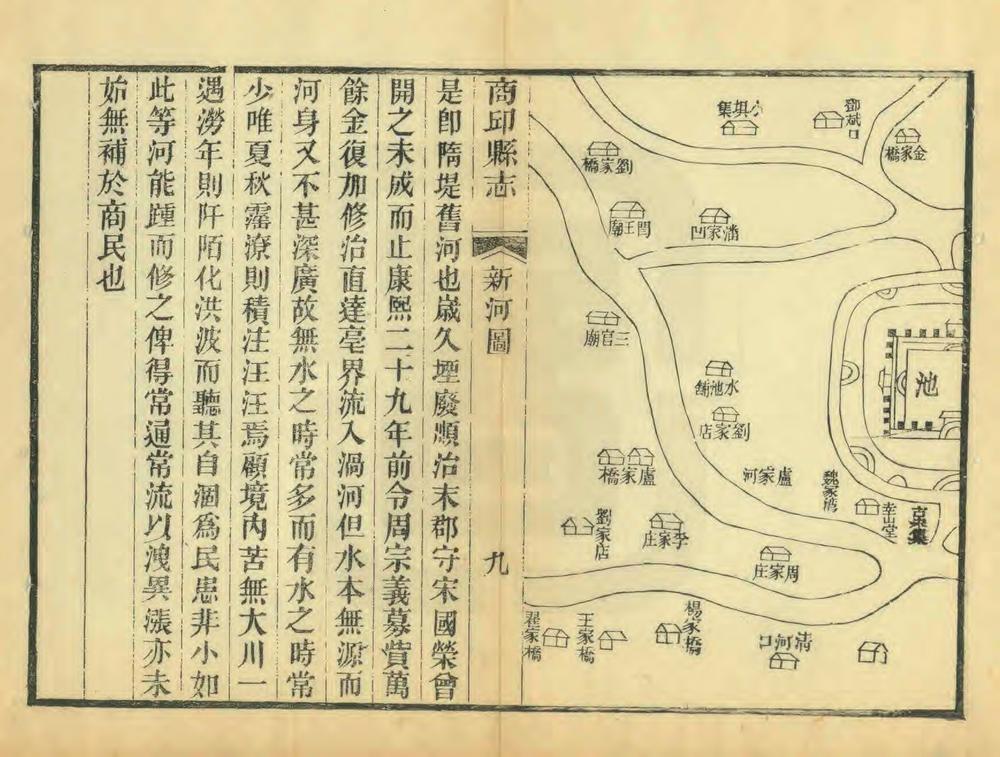 鄧斌口
金家橋
小垻集
劉家橋
閆王廟
潘家凹
三官廟
水池舖
劉家店
盧家橋
盧家河
魏家湾
幸山堂
池
劉家店
李家庄
周家庄
翟家橋
王家橋
楊家橋
清河口
商邱縣志
新河圖
九
是卽隋堤舊河也歲久堙廢順治末郡守宋國榮曾
開之未成而止康熙二十九年前令周宗義募貲萬
餘金復加修治直達亳界流入渦河但水本無源而
河身又不甚深廣故無水之時常多而有水之時常
少唯夏秋霪潦則積注汪汪焉顧境內苦無大川一
遇澇年則阡陌化洪波而聽其自涸爲民患非小如
此等河能踵而修之俾得常通常流以洩異漲亦未
始無補於商民也